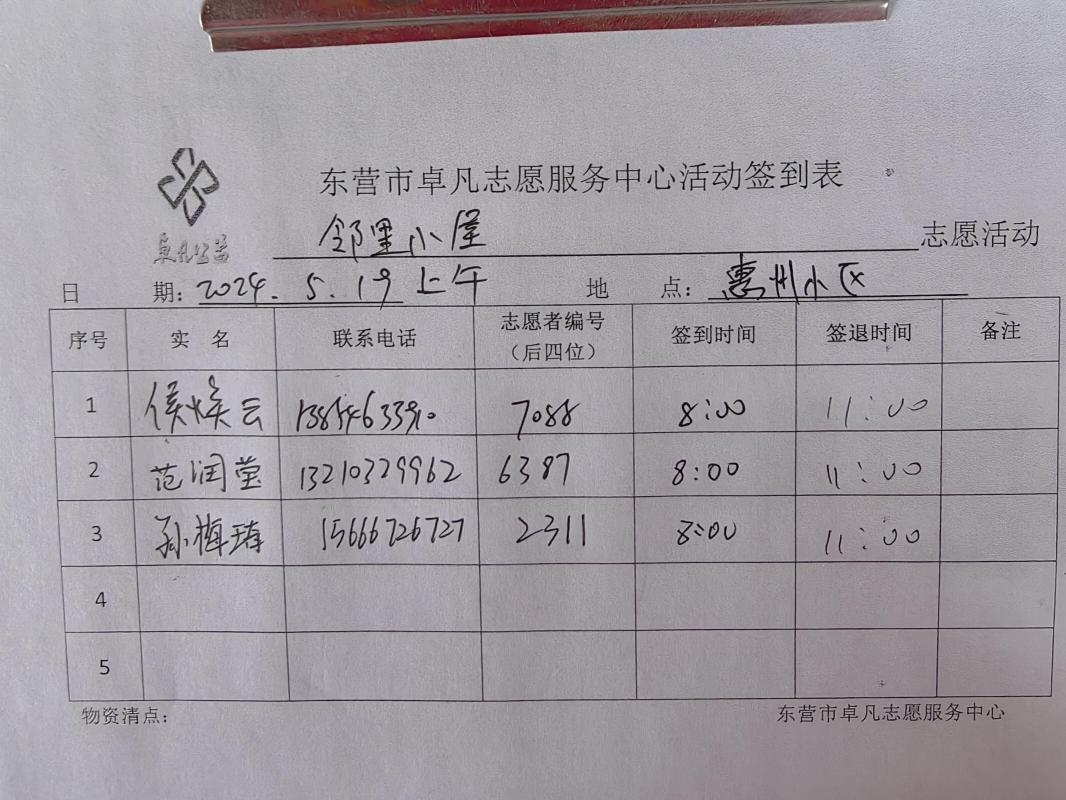 东营市卓凡志愿服务中心活动签到表
卓凡公益
邻里小屋 志愿活动
日 期: 2024.5.19 上午 地 点: 惠州小区
序号 实 名 联系电话 志愿者编号（后四位） 签到时间 签退时间 备注
1 侯焕云 13854633910 7088 8:00 11:00
2 范润莹 13210329962 6387 8:00 11:00
3 孙梅琦 15666726727 2311 8:00 11:00
4
5
物资清点: 东营市卓凡志愿服务中心